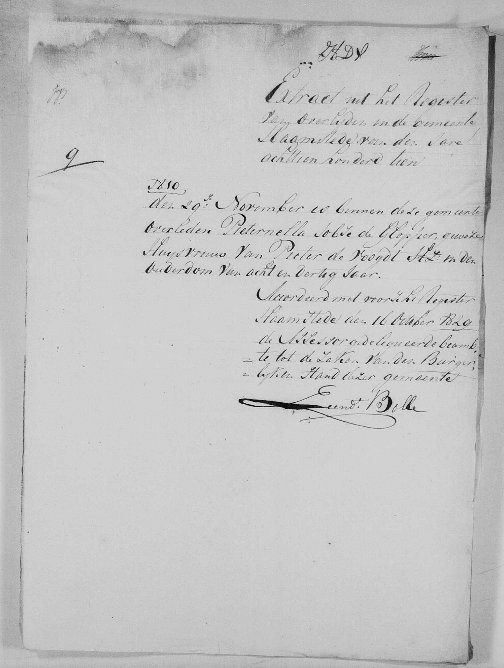 9
Extract uit het Register
van overleden in de Gemeente
Haamstede van den Jare
achttien honderd tien
1810
den 29e November is binnen deze gemeente
overleden Pieternella de
Huysvrouw van Pieter de Voogdt in den
ouderdom van acht en dertig Jaar.
Accordeerd met voorsz Register
Haamstede den 16 October 1829
de Assessor gedelegueerde beamb-
te, tot de Zaken van den Burger-
lyken Stand dezer gemeente
Leendt Bolle